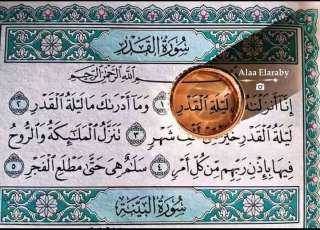 سُورَةُ القَدْرِ
بِسْمِ ٱللَّهِ ٱلرَّحْمَٰنِ ٱلرَّحِيمِ
Alaa Elaraby
إِنَّآ أَنزَلْنَٰهُ لَيْلَةِ ٱلْقَدْرِ ١ وَمَآ أَدْرَىٰكَ مَا لَيْلَةُ ٱلْقَدْرِ ٢
لَيْلَةُ ٱلْقَدْرِ خَيْرٌ شَهْرٍ ٣ تَنَزَّلُ ٱلْمَلَٰٓئِكَةُ وَٱلرُّوحُ
فِيهَا بِإِذْنِ رَبِّهِم مِّن كُلِّ أَمْرٍ ٤ سَلَٰمٌ هِىَ حَتَّىٰ مَطْلَعِ ٱلْفَجْرِ ٥
سُورَةُ البَيِّنَةِ